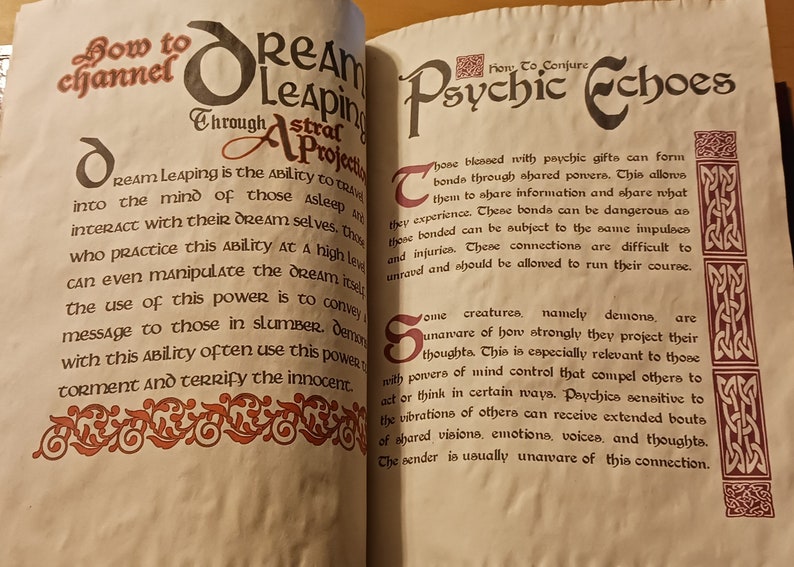 How to
channel
Dream
Leaping
Through Astral
Projection
Dream Leaping is the ability to travel
into the mind of those asleep and
interact with their dream selves, those
who practice this ability at a high level
can even manipulate the dream itself.
The use of this power is to convey a
message to those in slumber. Demons
with this ability often use this power to
torment and terrify the innocent.
How To Conjure
Psychic Echoes
Those blessed with psychic gifts can form
bonds through shared powers. This allows
them to share information and share what
they experience. These bonds can be dangerous as
those bonded can be subject to the same impulses
and injuries. These connections are difficult to
unravel and should be allowed to run their course.
Some creatures, namely demons, are
unaware of how strongly they project their
thoughts. This is especially relevant to those
with powers of mind control that compel others to
act or think in certain ways. Psychics sensitive to
the vibrations of others can receive extended bouts
of shared visions, emotions, voices, and thoughts.
The sender is usually unaware of this connection.